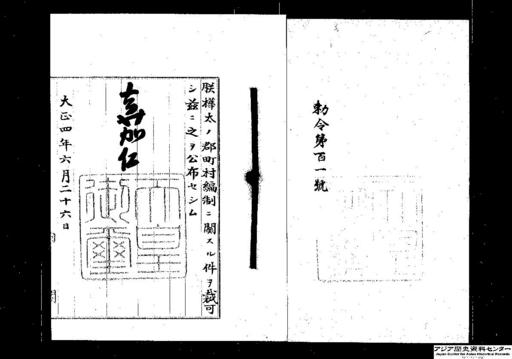 勅令第百一號
朕樺太ノ郡町村編制ニ關スル件ヲ裁可
シ茲ニ之ヲ公布セシム
嘉仁
天皇御璽
大正四年六月二十六日
アジア歴史資料センター
Japan Center for Asian Historical Records